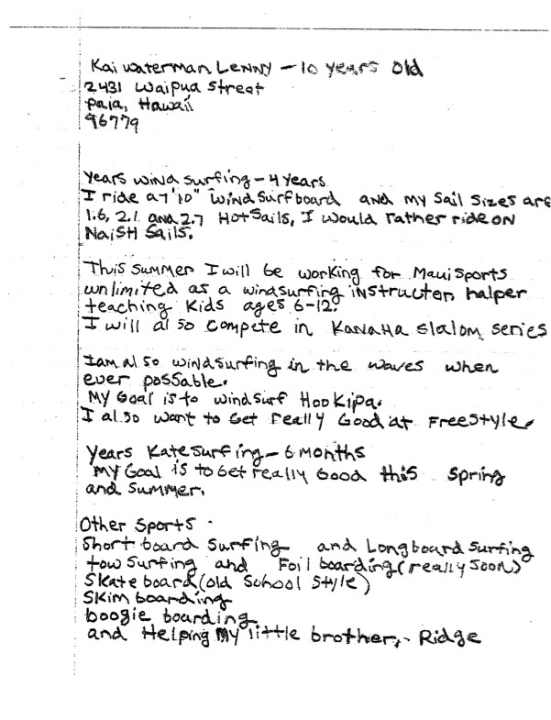 Kai waterman Lenny - 10 years old
2431 Waipua Street
paia, Hawaii
96779
Years wind surfing - 4 years
I ride a 7'10" windsurfboard and my sail sizes are
1.6, 2.1 and 2.7 Hot Sails, I would rather ride on
Naish Sails.
This summer I will be working for Maui Sports
unlimited as a windsurfing instructon halper
teaching kids ages 6-12.
I will also compete in Kanaha slalom series
I am also windsurfing in the waves when
ever possable.
My Goal is to windsurf Hookipa.
I also want to Get really Good at Freestyle.
Years Katesurfing - 6 months
My Goal is to Get really Good this spring
and summer.
Other Sports -
Short board surfing and Longboard surfing
tow surfing and Foil boarding (really soon)
Skate board (old School Style)
Skim boarding
boogie boarding
and Helping my little brother, Ridge